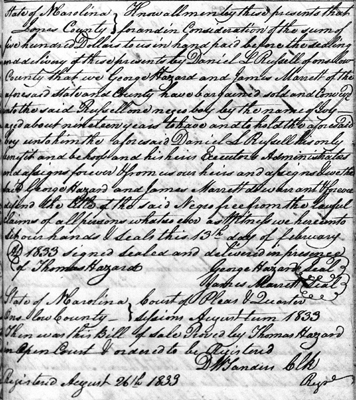 State of N Carolina } Know all men by these presents that
Jones County } for and in Consideration of the sum of
five hundred Dollars to us in hand paid before the sealing
and delivery of these presents by Daniel L Russell of onslow
County that we George Hazard and James Marett of the
aforesaid state and County have bargained sold and
the said Russell one negro boy by the name of
aged about nineteen years to have and to hold the aforesaid
boy unto him the aforesaid Daniel L Russell his only
and behoof and his heirs Executors Administrators
and assigns forever & from us our heirs and assigns
said George Hazard and James Marett do warrant & forever
defend the title of the said Negro free from the Lawful
Claims of all persons whatsoever as Witness we hereunto
set our hands & seals this 13th day of february
AD 1833 signed sealed and delivered in presence
of Thomas Hazard George Hazard Seal
James Marett Seal
State of N Carolina } Court of Pleas & Quarter
Onslow County } Sessions August turm 1833
Then was this Bill of Sale Proved by Thomas Hazard
in Open Court & ordered to be Registered
D W Sanders Clk
Registered August 26th 1833